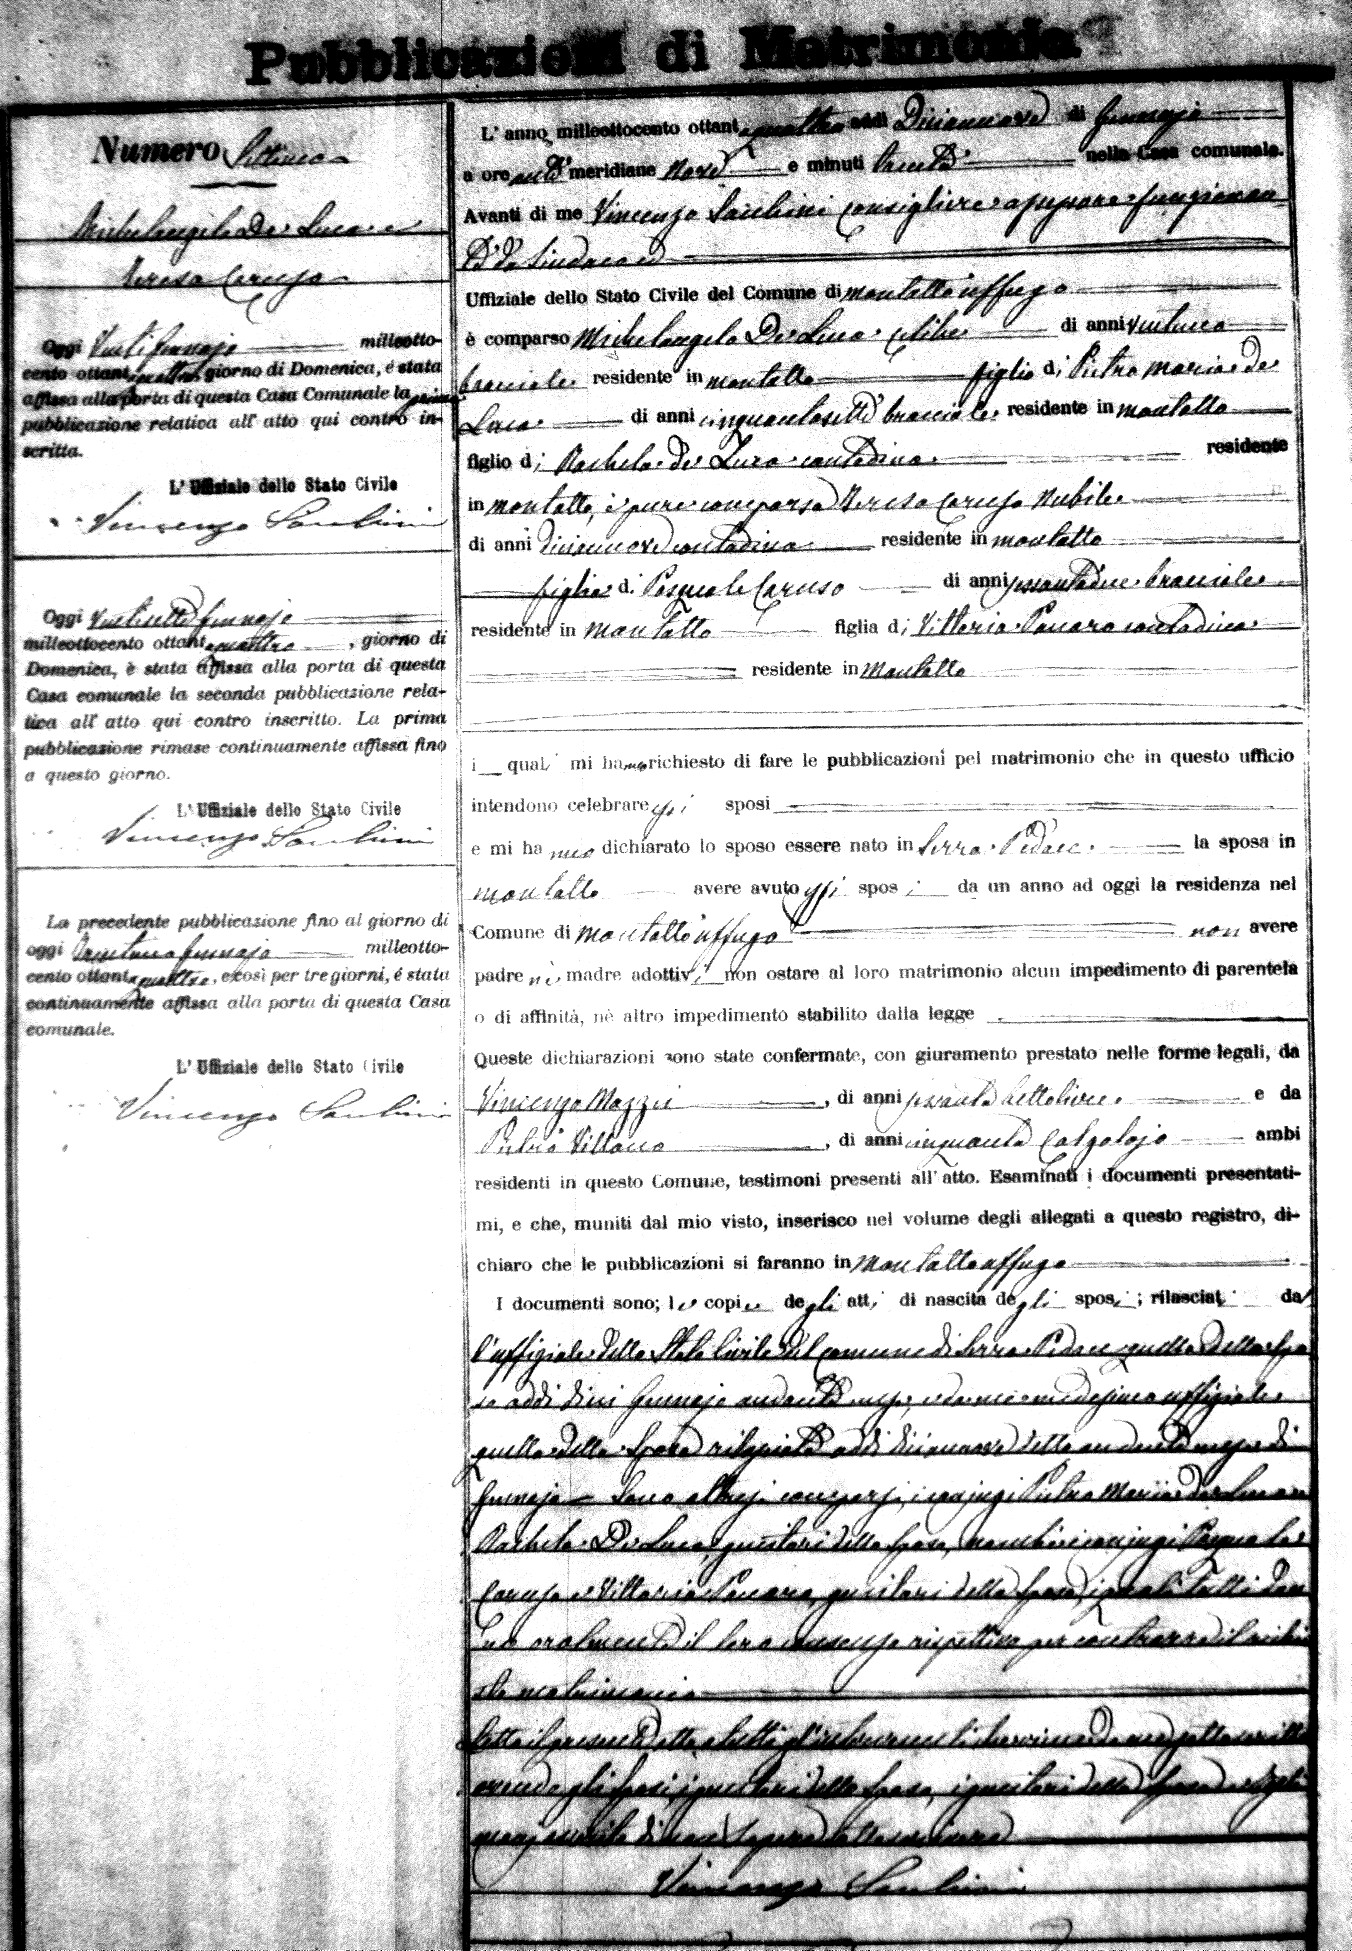 Pubblicazioni di Matrimonio
Numero
Michelangelo De Luca e
Teresa Caruso
Oggi Venti Gennajo milleotto-
cento ottantaquattro giorno di Domenica, é stata
affissa alla porta di questa Casa Comunale la prima
pubblicazione relativa all' atto qui contro in-
scritta.
L' Uffiziale dello Stato Civile
Vincenzo
Oggi Ventisette Gennajo
milleottocento ottantaquattro, giorno di
Domenica, è stata affissa alla porta di questa
Casa comunale la seconda pubblicazione rela-
tiva all' atto qui contro inscritto. La prima
pubblicazione rimase continuamente affissa fino
a questo giorno.
L' Uffiziale dello Stato Civile
Vincenzo
La precedente pubblicazione fino al giorno di
oggi Trentuno Gennajo milleotto-
cento ottantaquattro, e così per tre giorni, é stata
continuamente affissa alla porta di questa Casa
comunale.
L' Uffiziale dello Stato Civile
Vincenzo
L' anno milleottocento ottantaquattro addì Diciannove di Gennajo
a ore anti meridiane Nove e minuti trenta nella Casa comunale.
Avanti di me Vincenzo consigliere assessore funzionan
te da Sindaco
Uffiziale dello Stato Civile del Comune di Montalto Uffugo
è comparso Michelangelo De Luca celibe di anni
bracciale residente in Montalto figlio di Pietro Maria de
Luca di anni cinquantasette bracciale residente in Montalto
figlio di Rachele De Luca contadina residente
in Montalto, è pure comparsa Teresa Caruso Nubile
di anni diciannove contadina residente in Montalto
figlia di Pasquale Caruso di anni bracciale
residente in Montalto figlia di Vittoria contadina
residente in Montalto
i quali mi hanno richiesto di fare le pubblicazioni pel matrimonio che in questo ufficio
intendono celebrare essi sposi
e mi hanno dichiarato lo sposo essere nato in Serra Pedace la sposa in
Montalto avere avuto essi sposi da un anno ad oggi la residenza nel
Comune di Montalto Uffugo non avere
padre nè madre adottivi non ostare al loro matrimonio alcun impedimento di parentela
o di affinità, nè altro impedimento stabilito dalla legge
Queste dichiarazioni sono state confermate, con giuramento prestato nelle forme legali, da
Vincenzo Mazzei, di anni e da
Pietro Villano, di anni cinquanta Calzolajo ambi
residenti in questo Comune, testimoni presenti all' atto. Esaminati i documenti presentati-
mi, e che, muniti dal mio visto, inserisco nel volume degli allegati a questo registro, di-
chiaro che le pubblicazioni si faranno in Montalto Uffugo
I documenti sono; le copie degli atti di nascita degli sposi; rilasciati da
l'uffiziale dello Stato Civile del comune di Serra Pedace quella dello spo
so addì dieci Gennajo andante mese, e da me medesimo uffiziale
quella della sposa rilasciata addì diciannove dello andante mese di
Gennajo Sono altresì comparsi i conjugi Pietro Maria De Luca e
Rachele De Luca, genitori dello sposo, nonchè i conjugi Pasquale
Caruso e Vittoria, genitori della sposa, i quali tutti dan
no oralmente il loro consenso rispettivo per contrarre il richie
sto matrimonio
Letto il presente atto a tutti gl'intervenuti
avendo gli sposi, i genitori dello sposo, i genitori della sposa
di non sapere sottoscrivere
Vincenzo